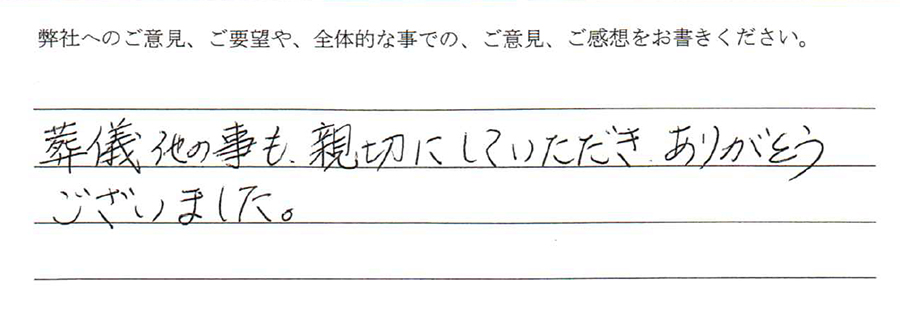 弊社へのご意見、ご要望や、全体的な事での、ご意見、ご感想をお書きください。
葬儀、他の事も、親切にしていただき、ありがとう
ございました。